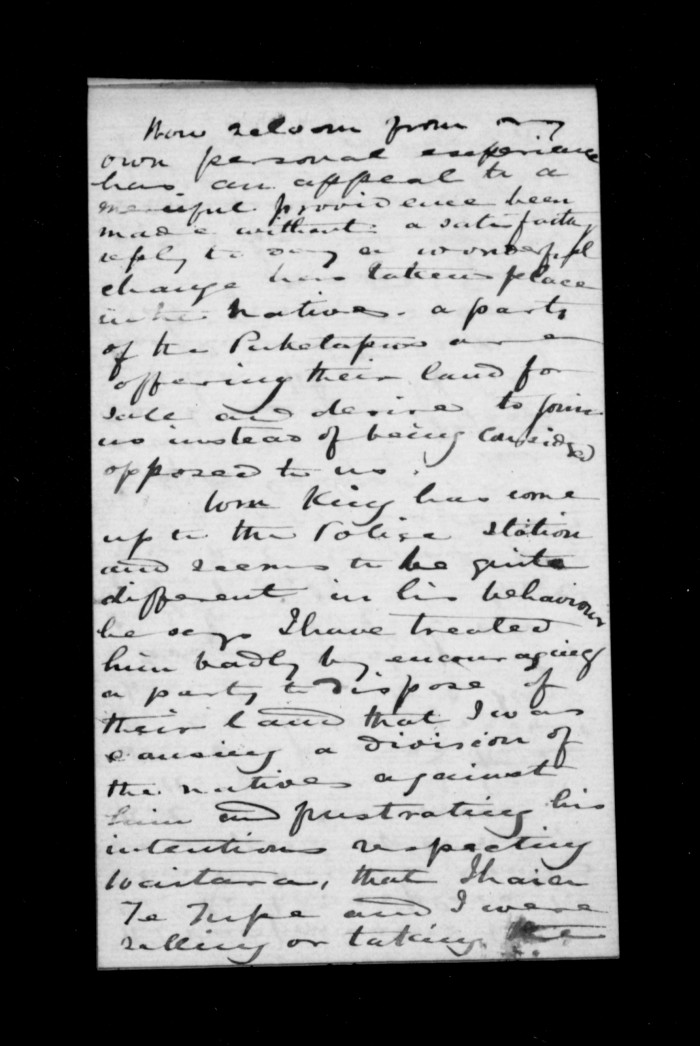 How seldom from my
own personal experience
has an appeal to a
merciful providence been
made without a satisfactory
reply to day a wonderful
change has taken place
in the Natives. a party
of the Puketapus are
offering their land for
sale and desire to join
us instead of being considered
opposed to us.
Wm King has come
up to the Police Station
and seems to be quite
different in his behaviour
he says I have treated
him badly by encouraging
a party to dispose of
their land that I was
causing a division of
the natives against
him and frustrating his
intentions respecting
Waitara, that Ihaia
Te Tupe and I were
selling or taking the